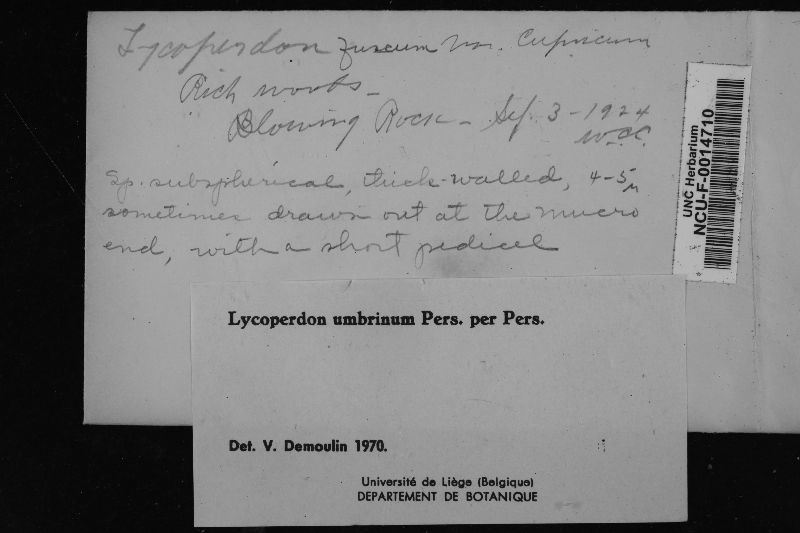 Lycoperdon fuscum var. cupricum
Rich woods -
Blowing Rock - Sep. 3 - 1924
W.C.C.
Sp. subspherical, thick-walled, 4-5µ
sometimes drawn out at the mucro
end, with a short pedicel
UNC Herbarium
NCU-F-0014710
Lycoperdon umbrinum Pers. per Pers.
Det. V. Demoulin 1970.
Université de Liège (Belgique)
DEPARTEMENT DE BOTANIQUE